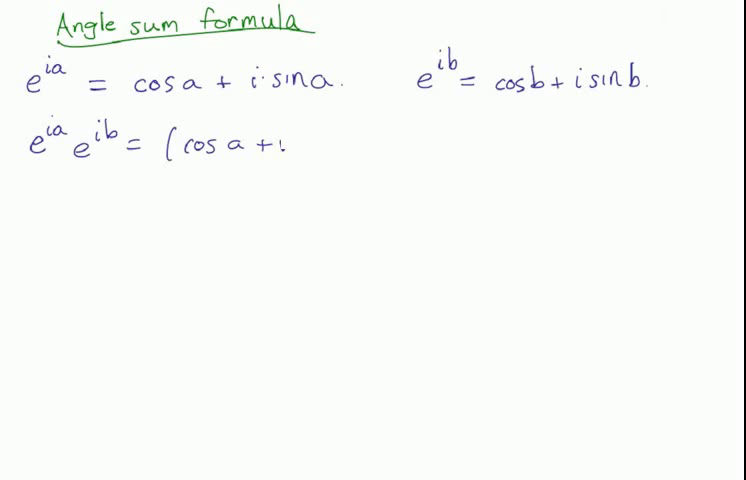 Angle sum formula
e^{ia} = cos a + i·sin a.    e^{ib} = cos b + i sin b.
e^{ia} e^{ib} = (cos a + i